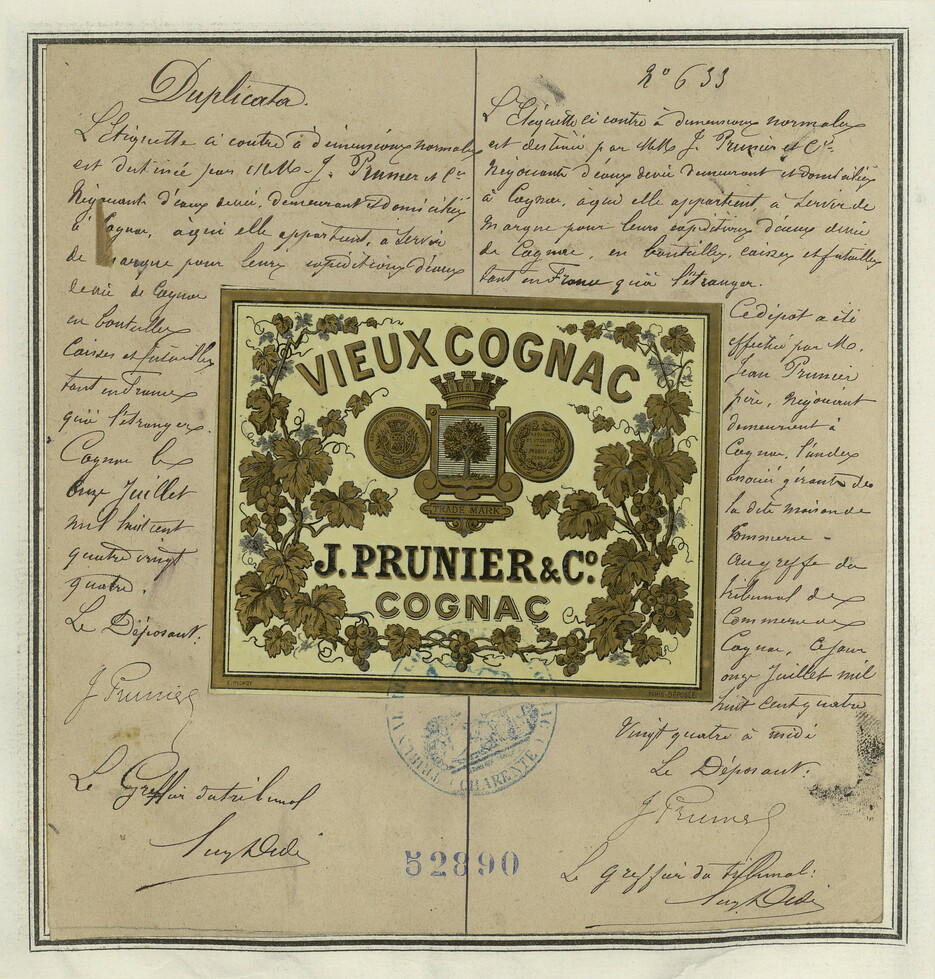 Duplicata.
L'Etiquette ci contre à dimensions normales
est destinée par MM. J. Prunier et Cie
Négociants d'eaux de vie, demeurant et domiciliés
à Cognac, à qui elle appartient, à servir
de marque pour leurs expéditions d'eaux
de vie de Cognac
en bouteilles
caisses et futailles
tant en France
qu'à l'étranger.
Cognac le
onze Juillet
mil huit cent
quatre vingt
quatre.
Le Déposant:
J Prunier
Le Greffier du tribunal
No 633
L'Etiquette ci contre à dimensions normales
est destinée par MM. J. Prunier et Cie
Négociants d'eaux de vie demeurant et domiciliés
à Cognac, à qui elle appartient, à servir de
marque pour leurs expéditions d'eaux de vie
de Cognac, en bouteilles, caisses et futailles
tant en France qu'à l'étranger.
Ce dépot a été
effectué par M.
Jean Prunier
père, Négociant
demeurant à
Cognac, l'un des
associés gérants de
la dite maison de
Commerce -
Au greffe du
tribunal de
Commerce de
Cognac, Ce jour
onze Juillet mil
huit cent quatre
Vingt quatre à midi
Le Déposant:
J Prunier
Le greffier du tribunal:
VIEUX COGNAC
TRADE MARK
J. PRUNIER & Co.
COGNAC
PARIS-DÉPOSÉ
TRIBUNAL
CHARENTE
52890